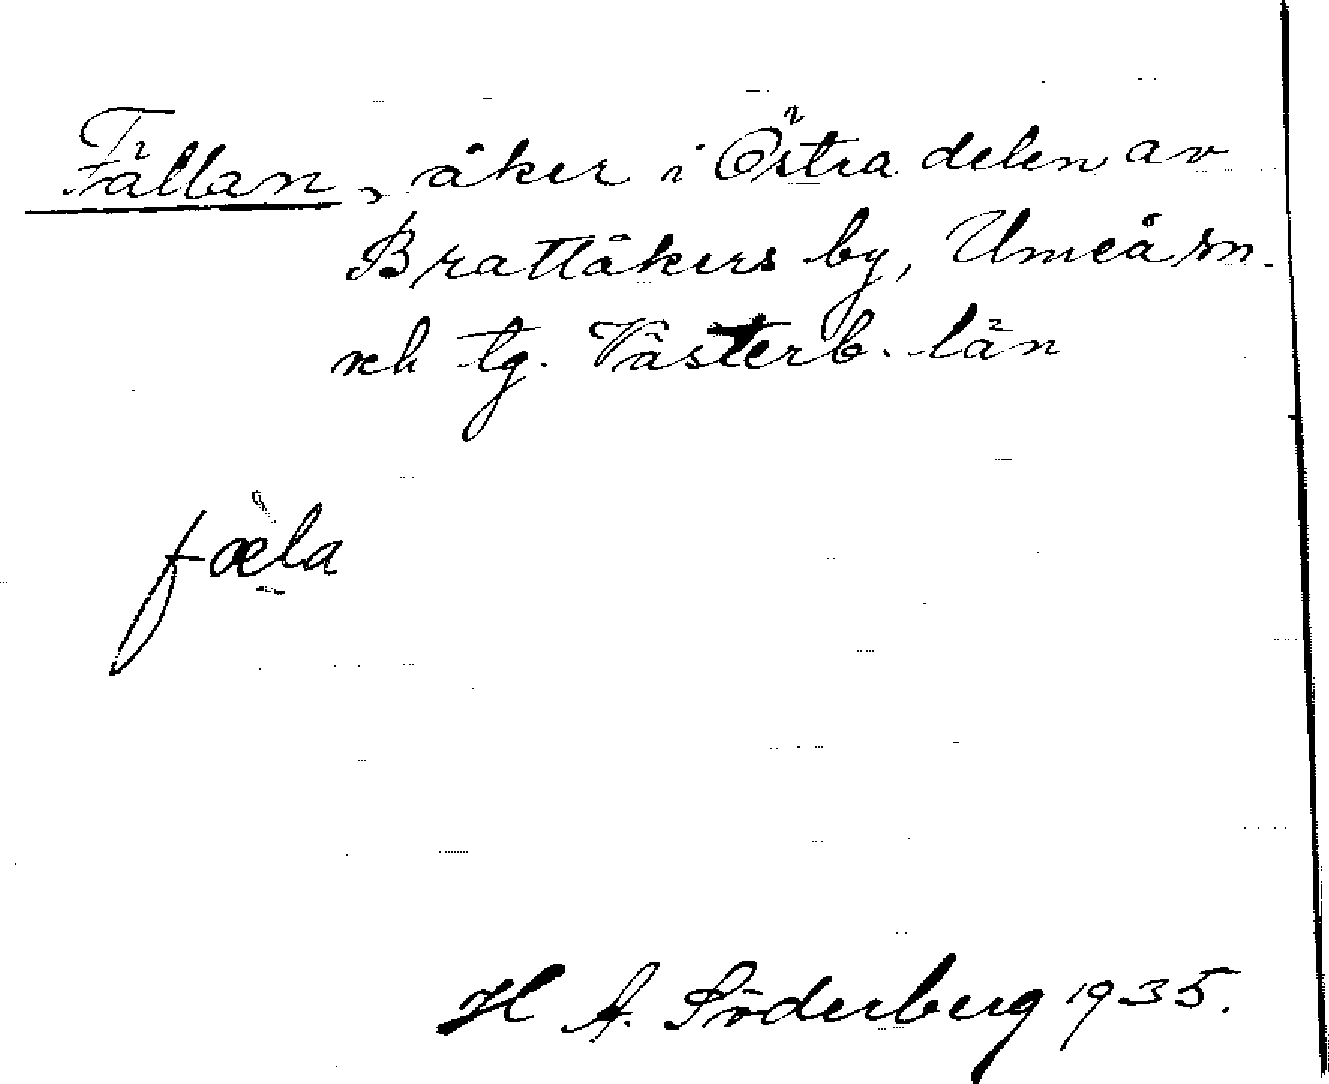 Fällan, åker i Östra delen av
Brattåkers by, Umeå sn.
och tg. Västerb. län
fæ̀la
H A. Söderberg 1935.